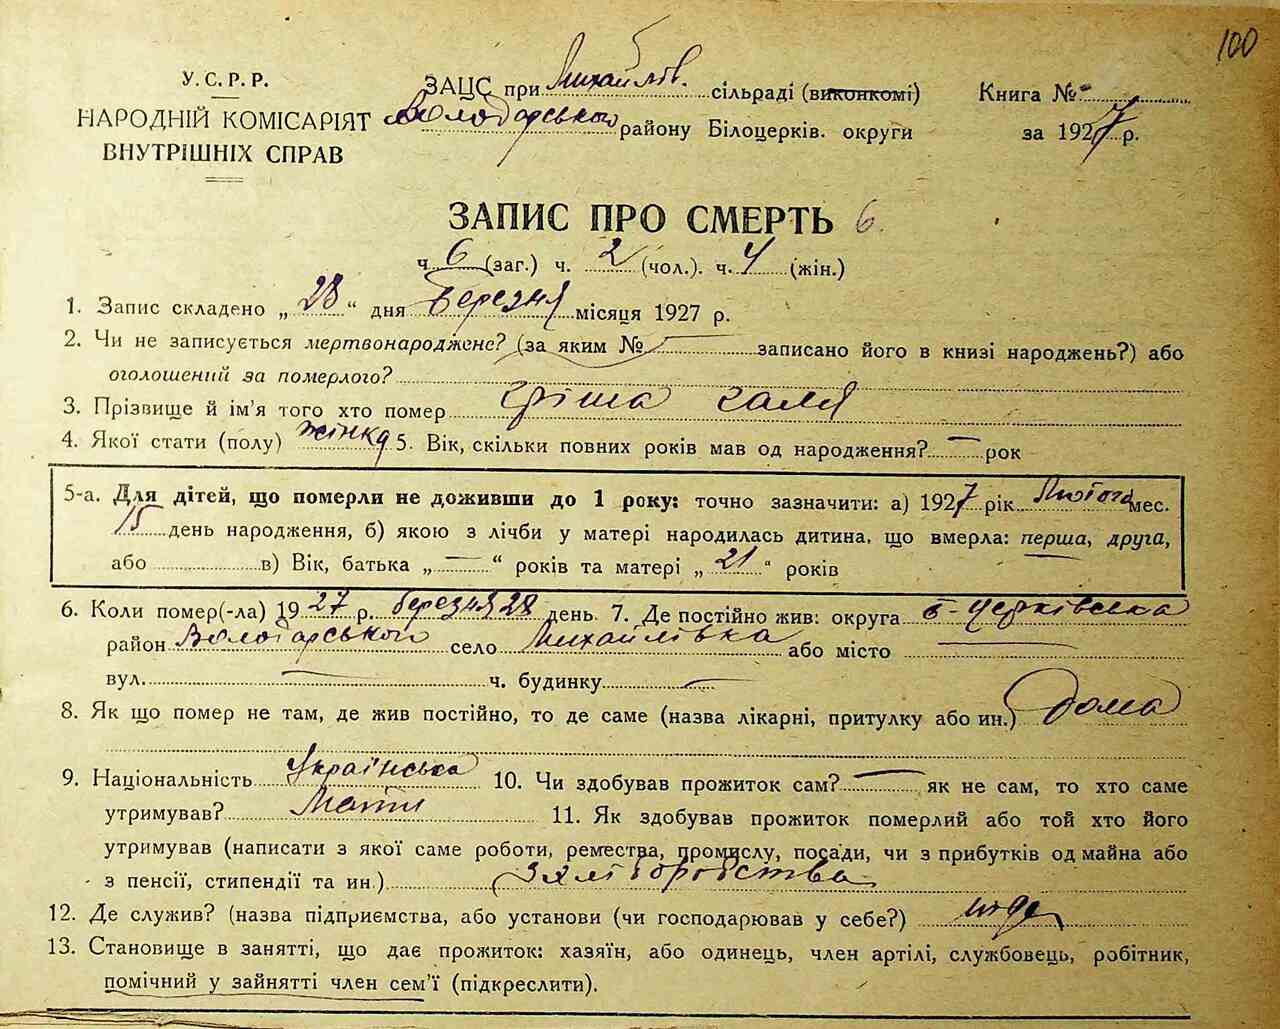 100
У.С.Р.Р.
НАРОДНІЙ КОМІСАРІЯТ
ВНУТРІШНІХ СПРАВ
ЗАЦС при Михайлів. сільраді (виконкомі) Книга №
Володарського району Білоцерків. округи за 1927 р.
ЗАПИС ПРО СМЕРТЬ 6.
ч. 6 (заг.) ч. 2 (чол.). ч. 4 (жін.)
1. Запис складено „ 28 “ дня Березня місяця 1927 р.
2. Чи не записується мертвонароджене? (за яким № записано його в книзі народжень?) або
оголошений за померлого?
3. Прізвище й ім'я того хто помер Гріша Галя
4. Якої стати (полу) жінка 5. Вік, скільки повних років мав од народження? — рок
5-а. Для дітей, що померли не доживши до 1 року: точно зазначити: а) 1927 рік Лютого мес.
15 день народження, б) якою з лічби у матері народилась дитина, що вмерла: перша, друга,
або в) Вік, батька „ — “ років та матері „ 21 “ років
6. Коли помер(-ла) 1927 р. березня 28 день. 7. Де постійно жив: округа Б-Церківська
район Володарського село Михайлівка або місто —
вул. — ч. будинку —
8. Як що помер не там, де жив постійно, то де саме (назва лікарні, притулку або ин.) Дома
9. Національність Українська 10. Чи здобував прожиток сам? — як не сам, то хто саме
утримував? Мати 11. Як здобував прожиток померлий або той хто його
утримував (написати з якої саме роботи, ремества, промислу, посади, чи з прибутків од майна або
з пенсії, стипендії та ин.) З хліборобства
12. Де служив? (назва підприємства, або установи (чи господарював у себе?)
13. Становище в занятті, що дає прожиток: хазяїн, або одинець, член артілі, службовець, робітник,
помічний у зайнятті член сем'ї (підкреслити).